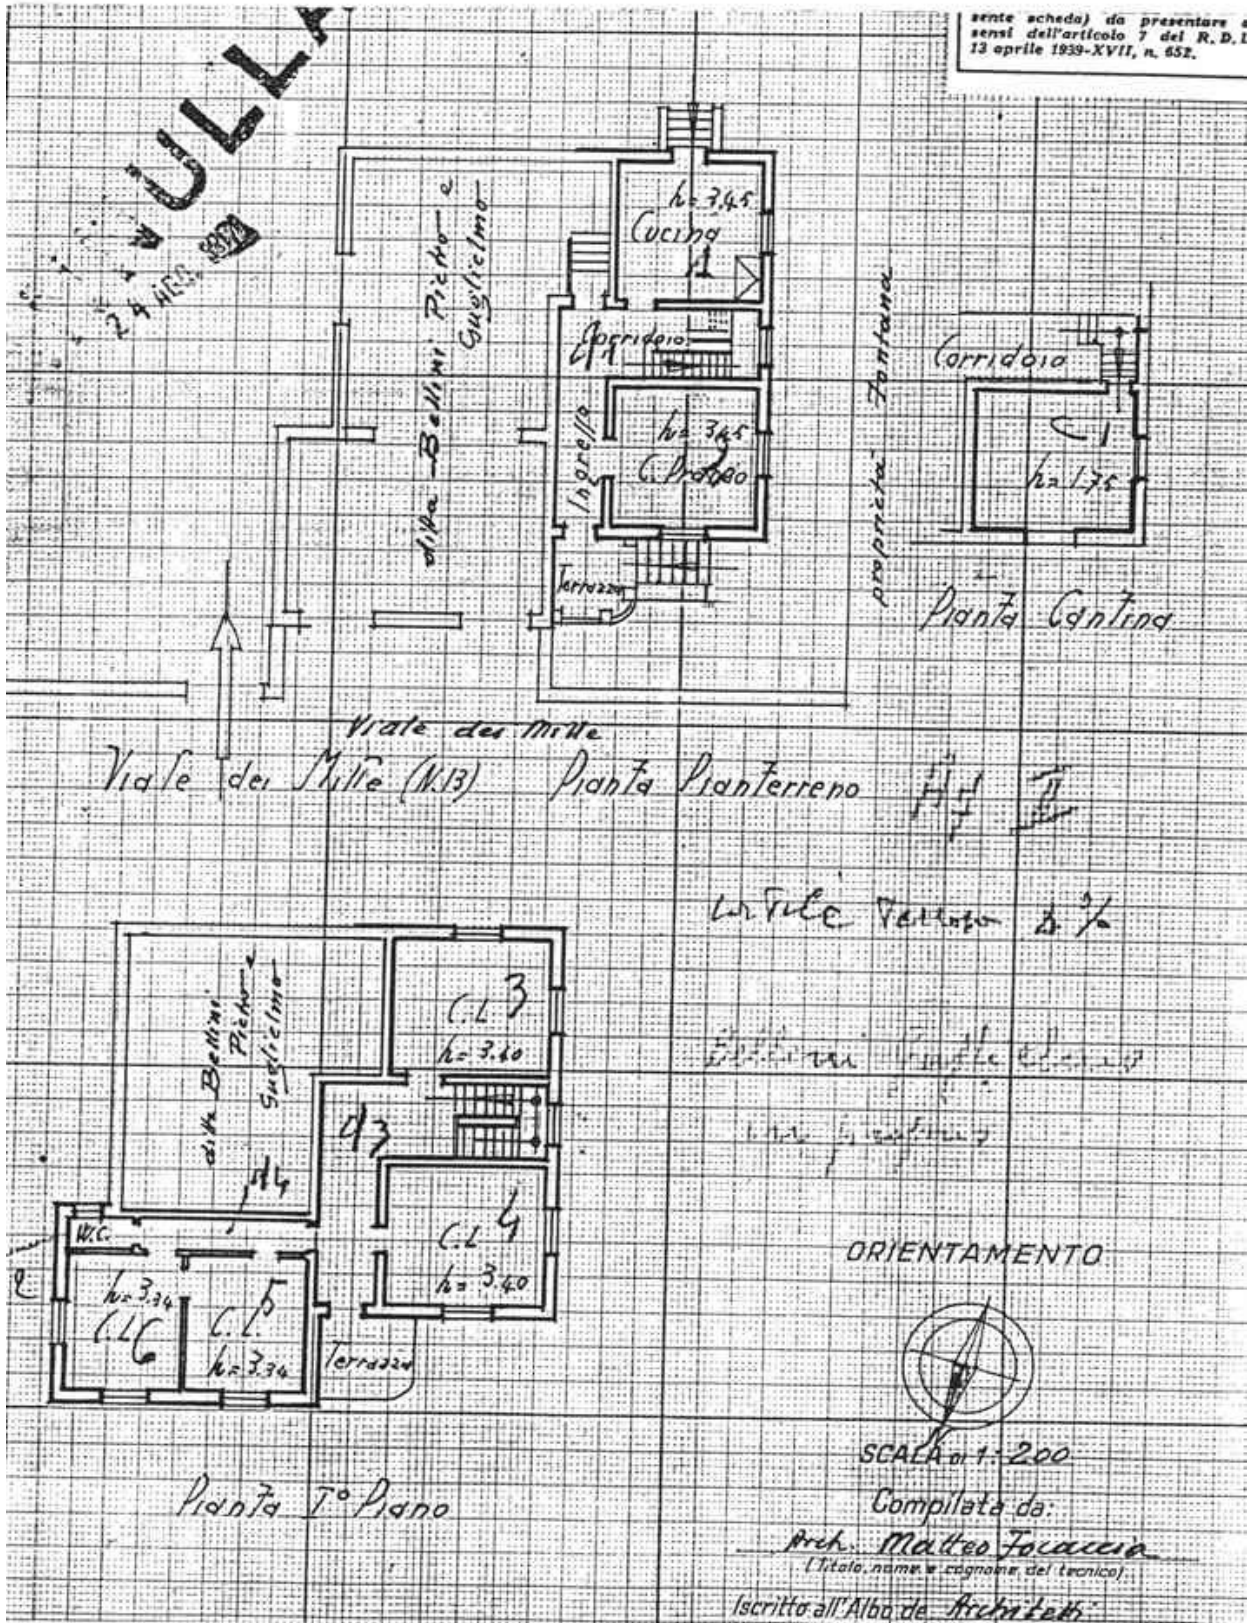 sente scheda) da presentare
sensi dell'articolo 7 del R.D.L
13 aprile 1939-XVII, n. 652.
NULLA
24 AGO.
h= 3,45
Cucina
1
ditta Bellini Pietro e
Guglielmo
Corridoio
Ingresso
h= 3,45
C. Pranzo
2
Terrazza
proprietà Fontana
Corridoio
C.1
h= 1.75
Pianta Cantina
Viale dei Mille
Viale dei Mille (N.13)
Pianta Pianterreno
II
ditta Bellini
Pietro e
Guglielmo
C.L 3
h= 3.40
d3
d4
W.C.
C.L 4
h= 3.40
h= 3.34
C.L 6
C.L. 5
h= 3.34
Terrazza
Pianta I° Piano
ORIENTAMENTO
SCALA DI 1: 200
Compilata da:
Arch. Matteo Focaccia
(Titolo, nome e cognome del tecnico)
Iscritto all'Albo de Architetti